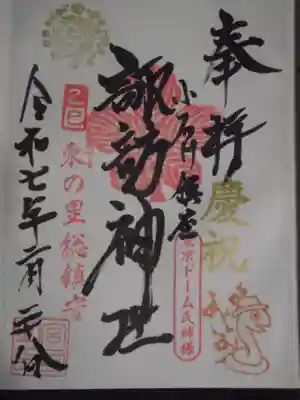 奉拝
慶祝
小石川鎮座
東京ドーム氏神様
諏訪神社
乙巳
東の里総鎮守
令和七年二月 节分